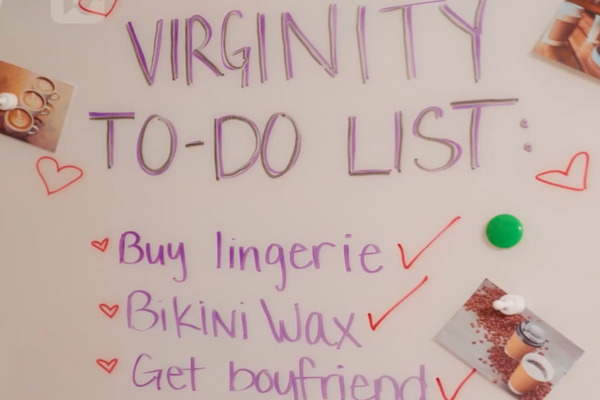 VIRGINITY
TO-DO LIST:
Buy lingerie
Bikini Wax
Get boyfriend